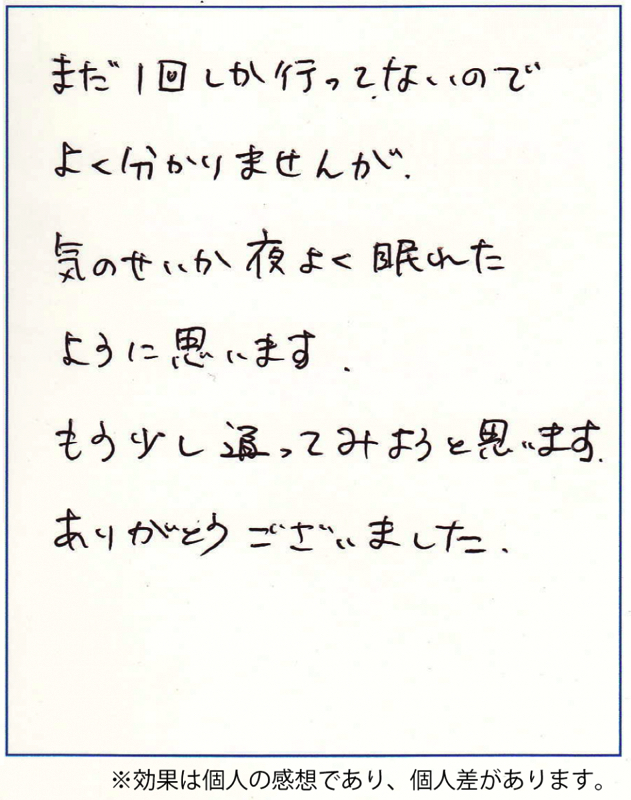 まだ1回しか行ってないので
よく分かりませんが.
気のせいか夜よく眠れた
ように思います.
もう少し通ってみようと思います.
ありがとうございました.
※効果は個人の感想であり、個人差があります。